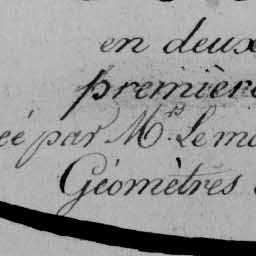 en deux
première
par Mrs. Le
Géomètres